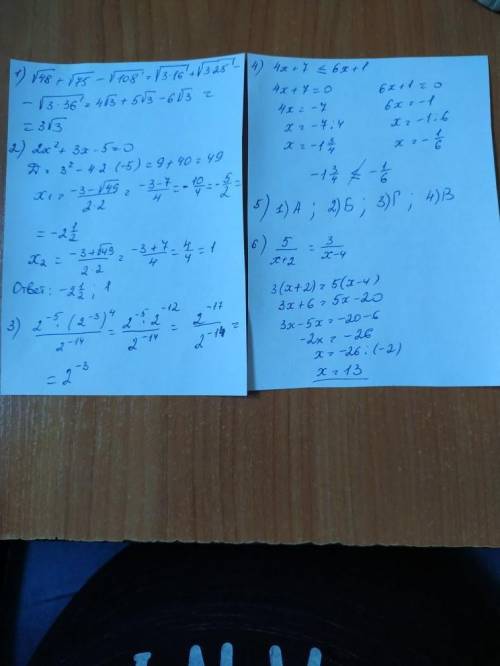 1) √48 + √75 - √108 = √3·16 + √3·25 -
- √3·36 = 4√3 + 5√3 - 6√3 =
= 3√3
2) 2x² + 3x - 5 = 0
Д = 3² - 4·2·(-5) = 9 + 40 = 49
x₁ = (-3-√49)/(2·2) = (-3-7)/4 = -10/4 = -5/2 =
= -2 1/2
x₂ = (-3+√49)/(2·2) = (-3+7)/4 = 4/4 = 1
Ответ: -2 1/2 ; 1
3) (2⁻⁵ · (2⁻³)⁴)/2⁻¹⁴ = (2⁻⁵ · 2⁻¹²)/2⁻¹⁴ = 2⁻¹⁷/2⁻¹⁴ =
= 2⁻³
4) 4x + 7 ≤ 6x + 1
4x + 7 = 0 6x + 1 = 0
4x = -7 6x = -1
x = -7 : 4 x = -1 : 6
x = -1 3/4 x = -1/6
-1 3/4 ≤ -1/6
5) 1) А ; 2) Б ; 3) Г ; 4) В
6) 5/(x+2) = 3/(x-4)
3(x+2) = 5(x-4)
3x + 6 = 5x - 20
3x - 5x = -20 - 6
-2x = -26
x = -26 : (-2)
x = 13